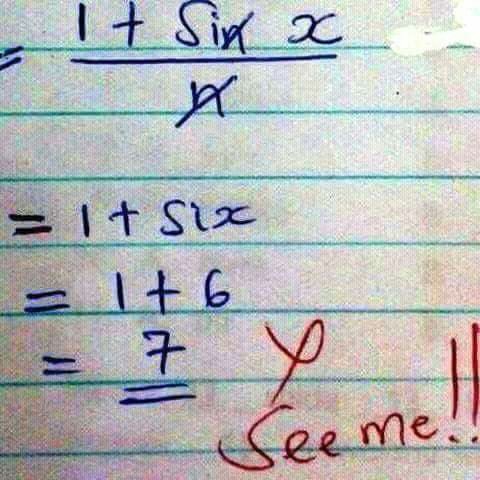 = 1 + sin x
n
= 1 + six
= 1 + 6
= 7
See me!!